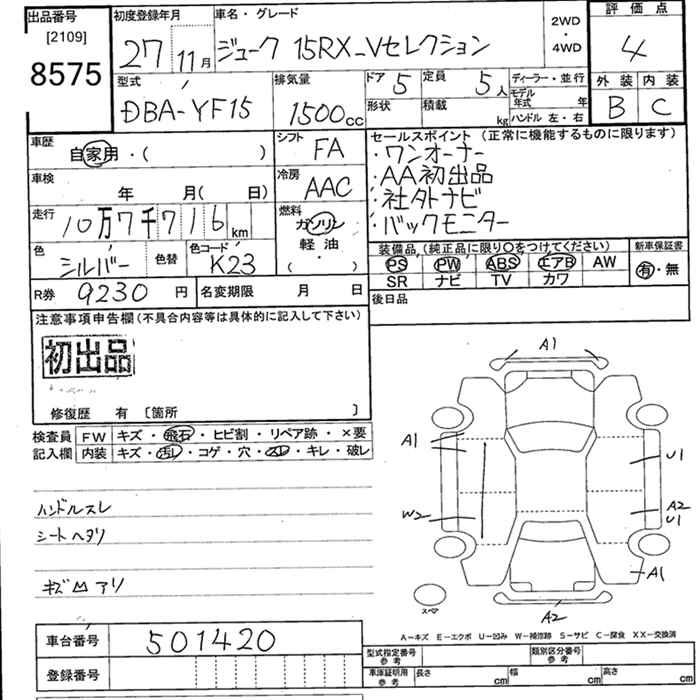 出品番号
[2109]
8575
初度登録年月
27 11月
車名・グレード
ジューク 15RX_Vセレクション
2WD
・
4WD
評価点
4
外装 内装
B C
型式
DBA-YF15
排気量
1500cc
ドア 5
定員 5人
形状
積載 kg
ディーラー・並行
モデル年式 年
ハンドル 左・右
車歴
自家用・( )
シフト
FA
車検
年 月( 日)
冷房
AAC
走行
10万7千716km
燃料
ガソリン
軽油
( ・ )
色
シルバー
色替
色コード
K23
R券 9230円
名変期限 月 日
セールスポイント (正常に機能するものに限ります)
・ワンオーナー
・AA初出品
・社外ナビ
・バックモニター
装備品(純正品に限り○をつけてください)
PS PW ABS エアB AW
SR ナビ TV カワ
新車保証書
有・無
後日品
注意事項申告欄(不具合内容等は具体的に記入して下さい)
初出品
修復歴 有 [箇所 ]
検査員
記入欄
FW キズ・飛石・ヒビ割・リペア跡・×要
内装 キズ・汚レ・コゲ・穴・スレ・キレ・破レ
ハンドルスレ
シートヘタリ
キズ凹アリ
A1
A1
U1
W2
A2
U1
A1
スペア
A2
A-キズ E-エクボ U-凹み W-補修跡 S-サビ C-腐食 XX-交換済
車台番号 501420
登録番号
型式指定番号
参考
類別区分番号
参考
車庫証明用
参考
長さ cm 幅 cm 高さ cm